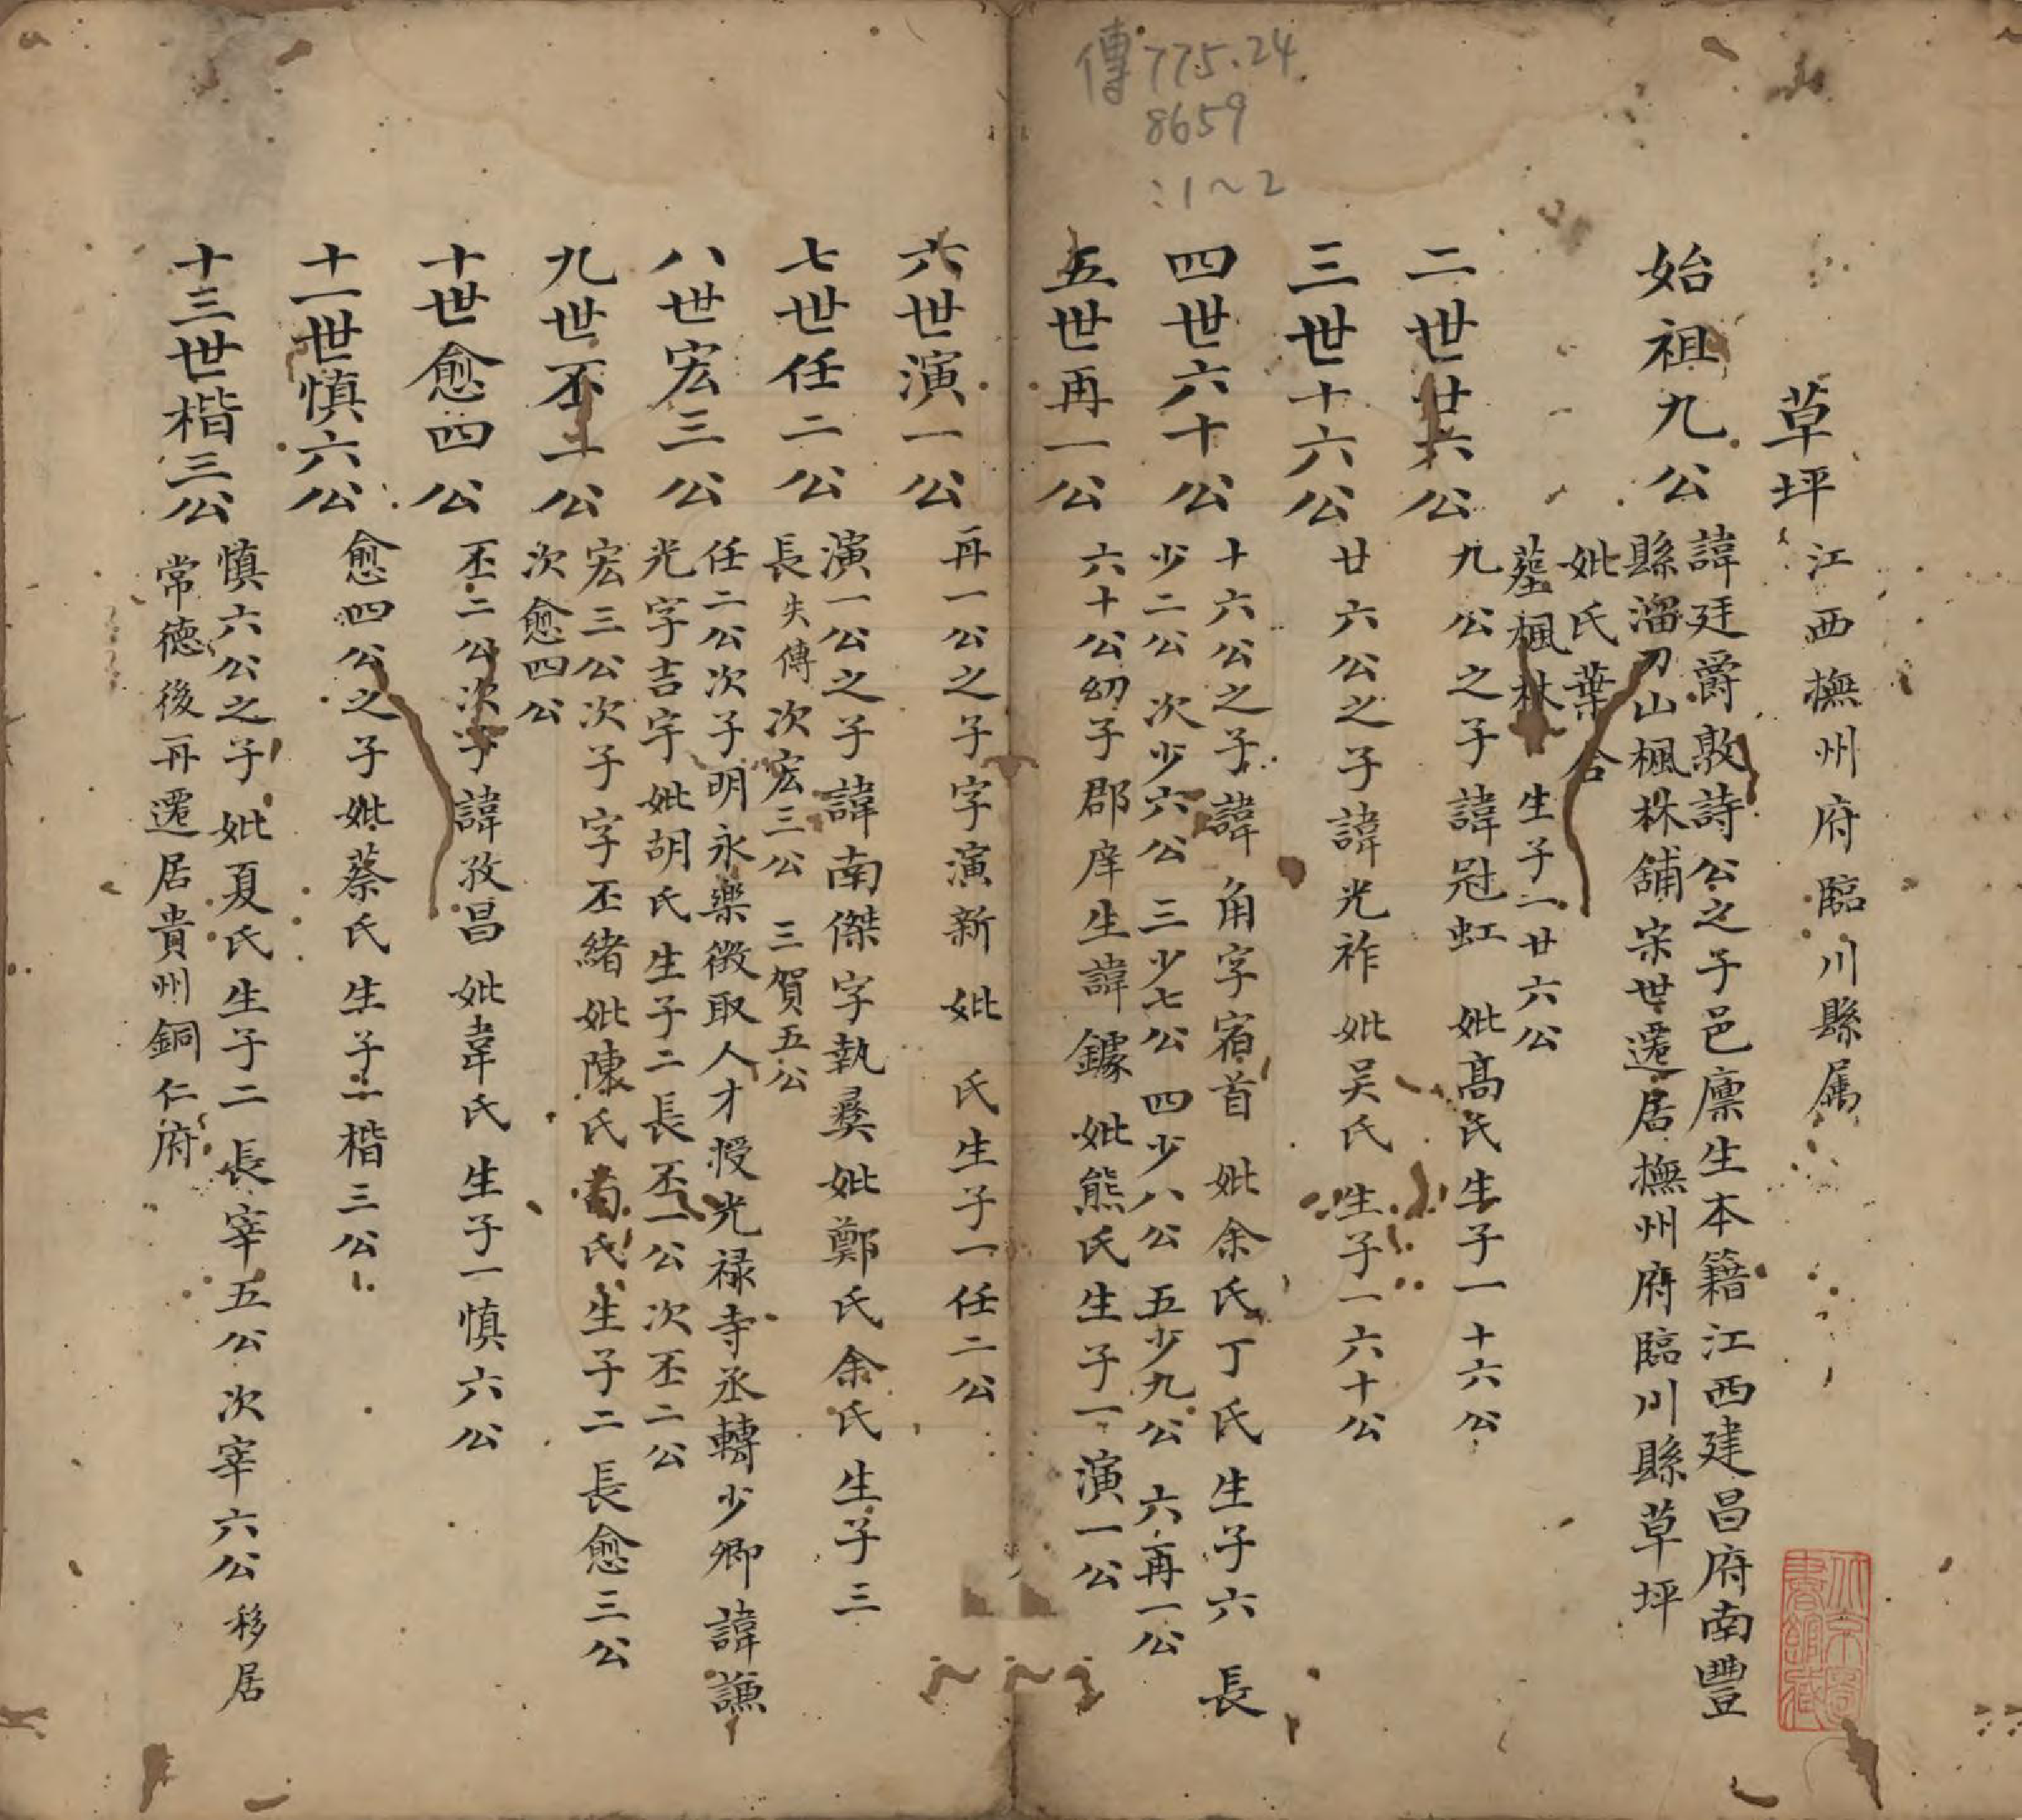 傳775.24
8659
:1~2
草坪 江西撫州府臨川縣属
始祖九公 諱廷爵敦詩公之子邑廪生本籍江西建昌府南豐
縣溜刀山楓林舖宋世遷居撫州府臨川縣草坪
妣氏葉 合
墓楓林 生子一廿六公
二世廿六公 九公之子諱冠虹 妣髙氏生子一十六公
三世十六公 廿六公之子諱光祚妣吴氏生子一六十公
四世六十公 十六公之子諱角字宿首 妣余氏丁氏生子六 長
少二公 次少六公 三少七公 四少八公 五少九公 六再一公
五世再一公 六十公幼子郡庠生諱鐻 妣熊氏生子一演一公
六世演一公 再一公之子字演新 妣 氏生子一任二公
七世任二公 演一公之子諱南傑字執彝妣鄭氏余氏生子三
長失傳 次宏三公 三賀五公
八世宏三公 任二公次子明永樂徴取人才授光禄寺丞轉少卿諱謙
光字吉宇妣胡氏生子二長丕一公次丕二公
九世丕二公 宏三公次子字丕緒妣陳氏 氏生子二長愈三公
次愈四公
十世愈四公 丕二公次子諱孜昌 妣韋氏生子一慎六公
十一世慎六公 愈四公之子妣蔡氏生子一楷三公
十三世楷三公 慎六公之子妣夏氏生子二長宰五公次宰六公移居
常徳後再遷居貴州銅仁府